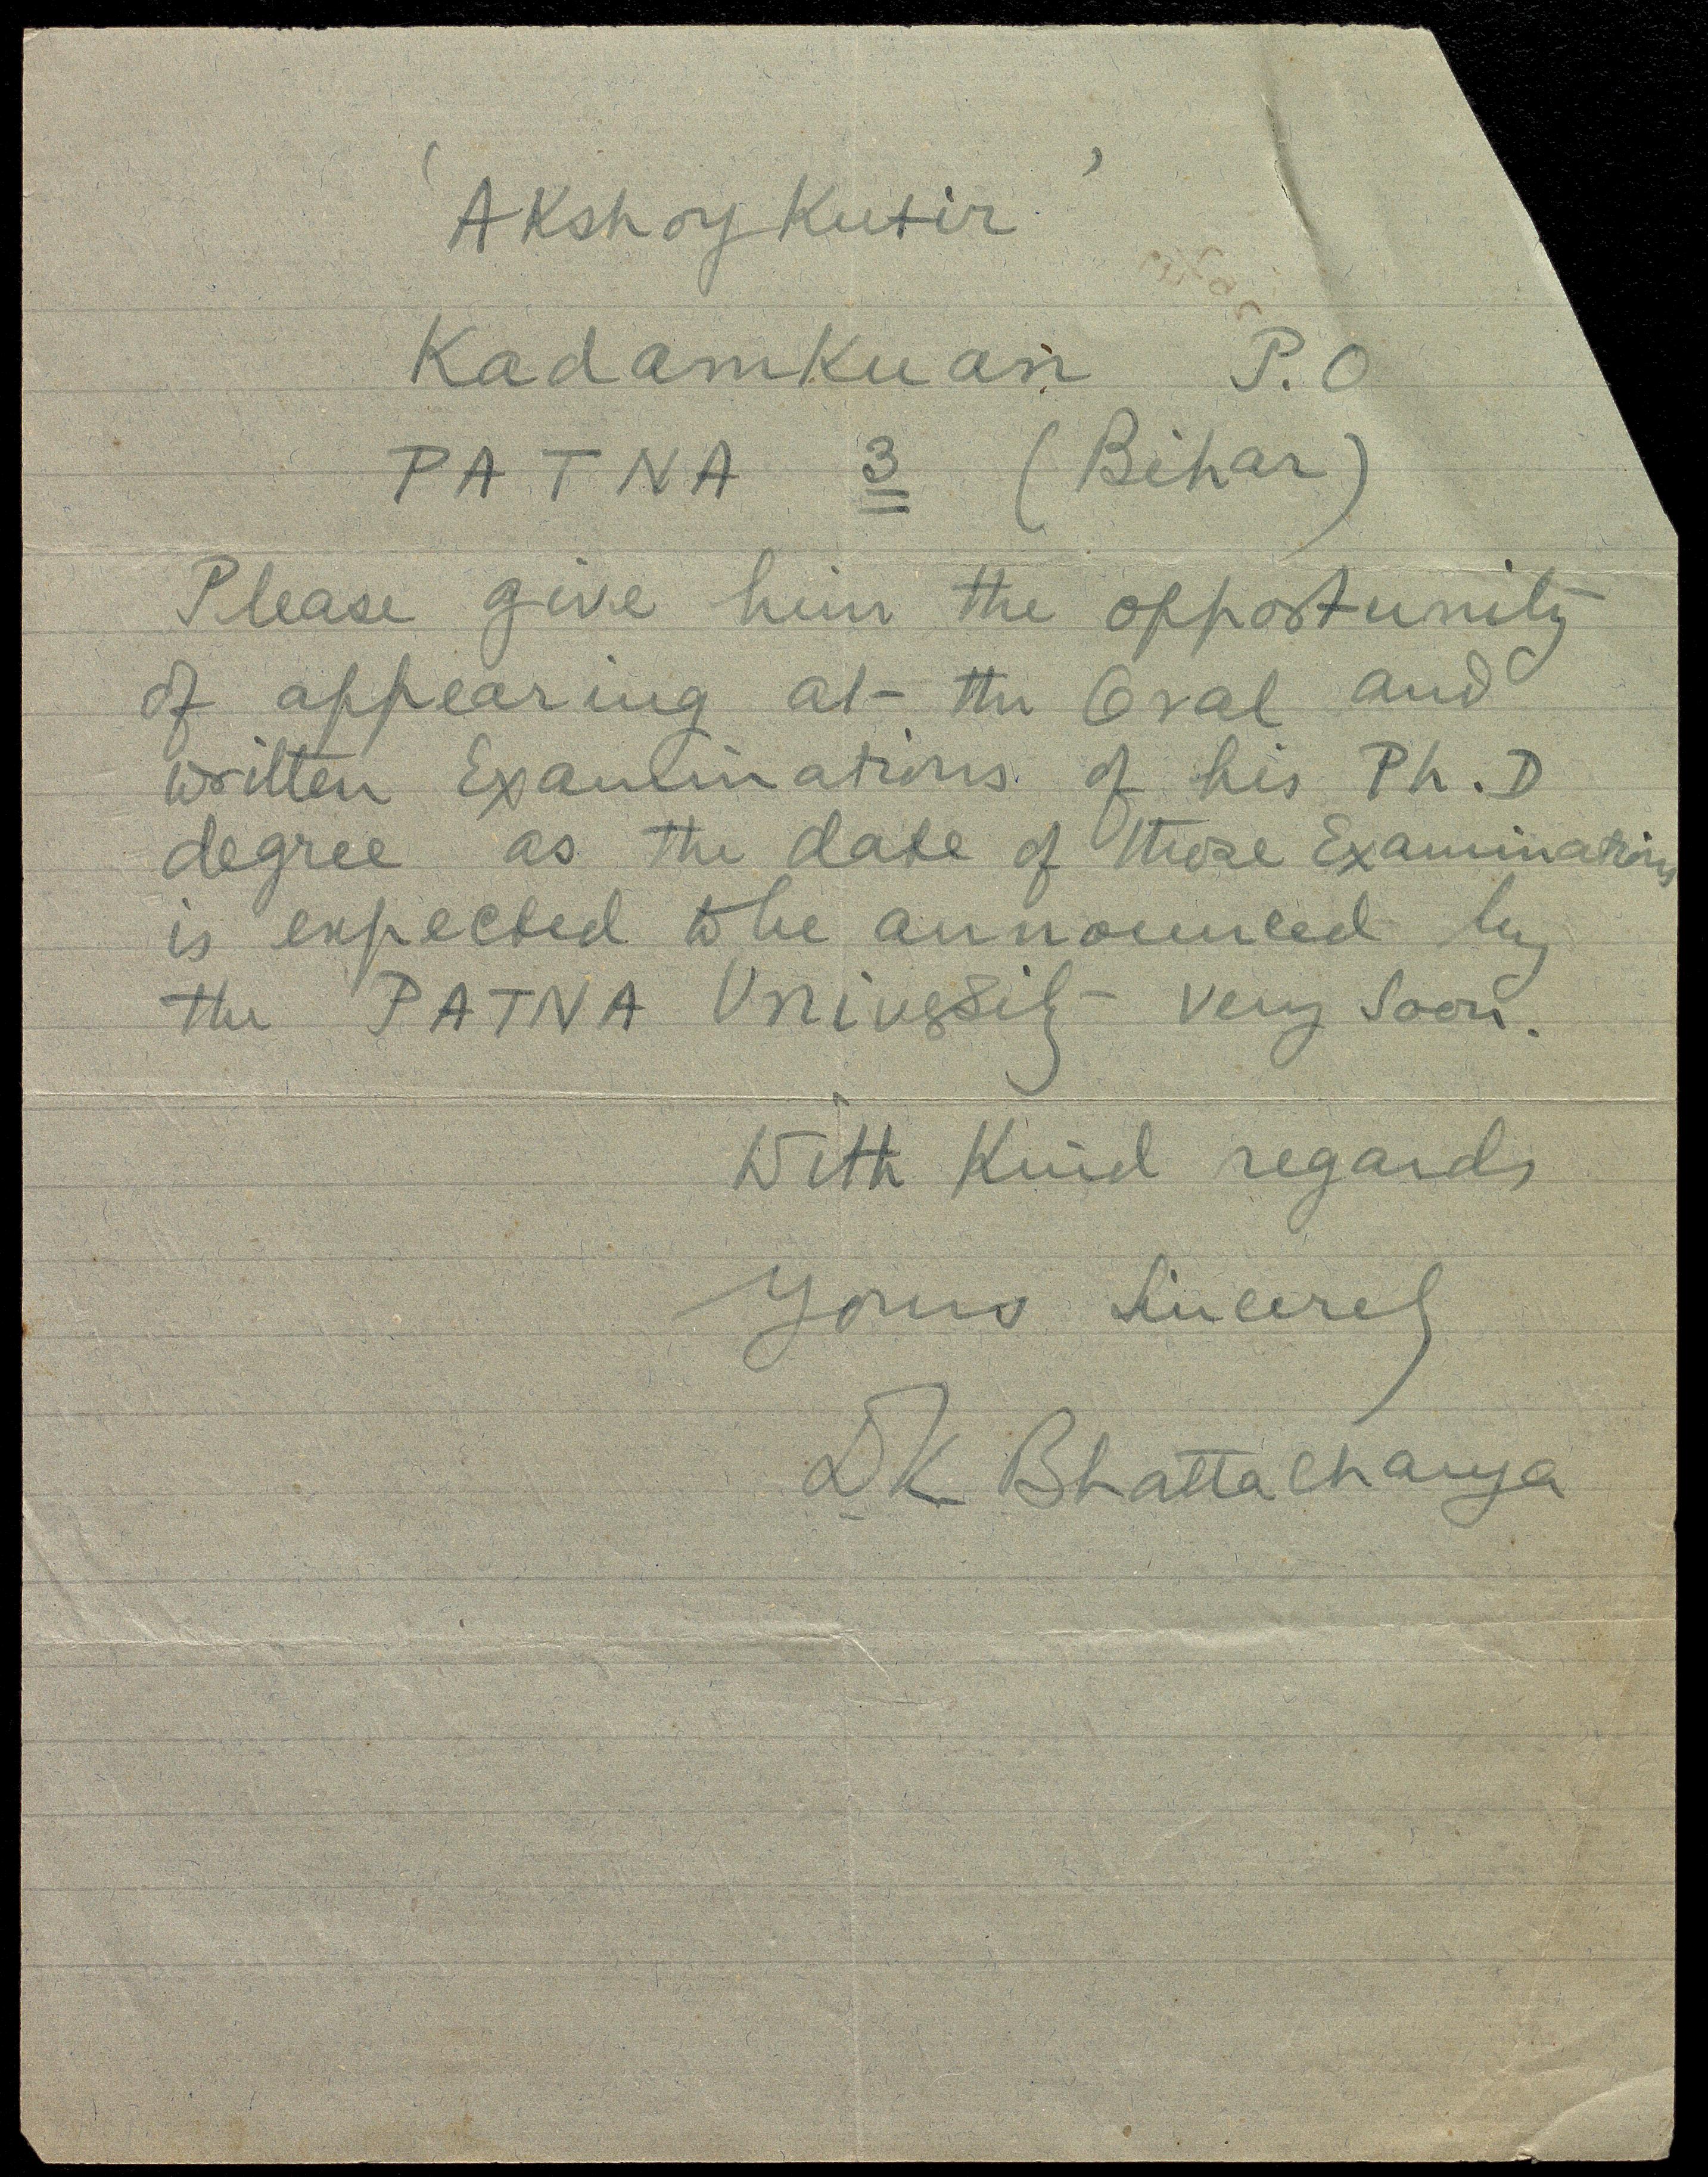 ' Akshoy Kutir '
Kadamkuan P.O
PATNA 3 (Bihar)
Please give him the opportunity
of appearing at the Oral and
written Examinations of his Ph.D
degree as the date of those Examinations
is expected to be announced by
the PATNA University very soon.
With Kind regards
Yours Sincerely
DK Bhattacharya